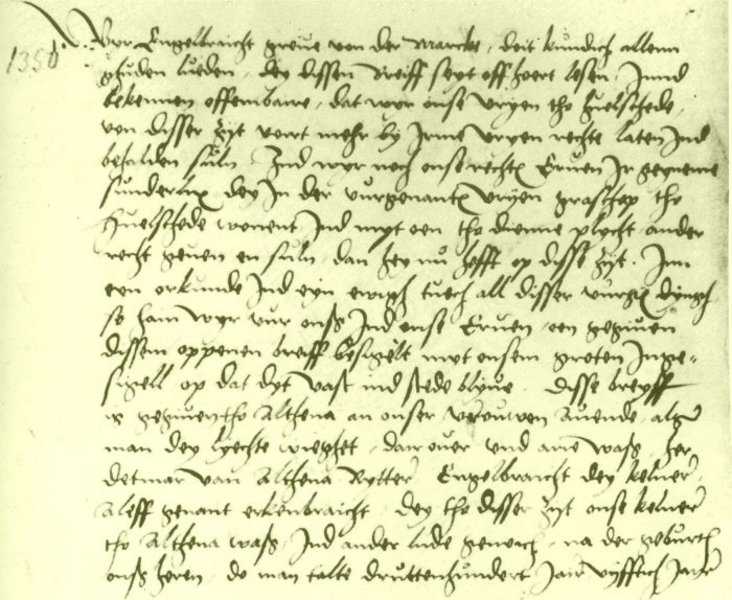 1350.
Wyr Engelbraicht greue von der Marcke, doit kundich allenn
ghuden lueden, dey dissen Breiff seyt off hoert lesen, Innd
bekennen offembaire, dat wyr onse vryen tho Huelschede,
von disser zyt vort mehr by Irme vryen rechte laten Ind
behalden suln. Ind wyr noch onse rechten Eruen Ir geynem
sunderlix dey In der vurgenanten vryen graschap tho
Huelschede wonent Ind myt een tho dienne plecht ander
recht geuen en suln, dan hey nu hefft op disse zyt. Im
eyn orkunde Ind eyn ewigh tuech all disser vurgen dyngh
so hain wyr vur onss Ind onse Eruen, een gegeuen
dissem oppenen breiff besigelt myt onsem groten Inge-
sigell op dat dyt vast ind stede blyue. Disse breyff
is gegeuen tho Althena an onser vrouwen Auende, alsz
man dey lychte wieghet, dair ouer vnd aue wass, her
Detmar van Althena Rytter, Engelbraicht dey kelner,
Aleff genant erkenbraicht, dey tho disser zyt onse kelner
tho Althena wass, Ind ander lude genoich, na der geburt
onss heren, do man talte druttenhundert Jair vyfftich Jair